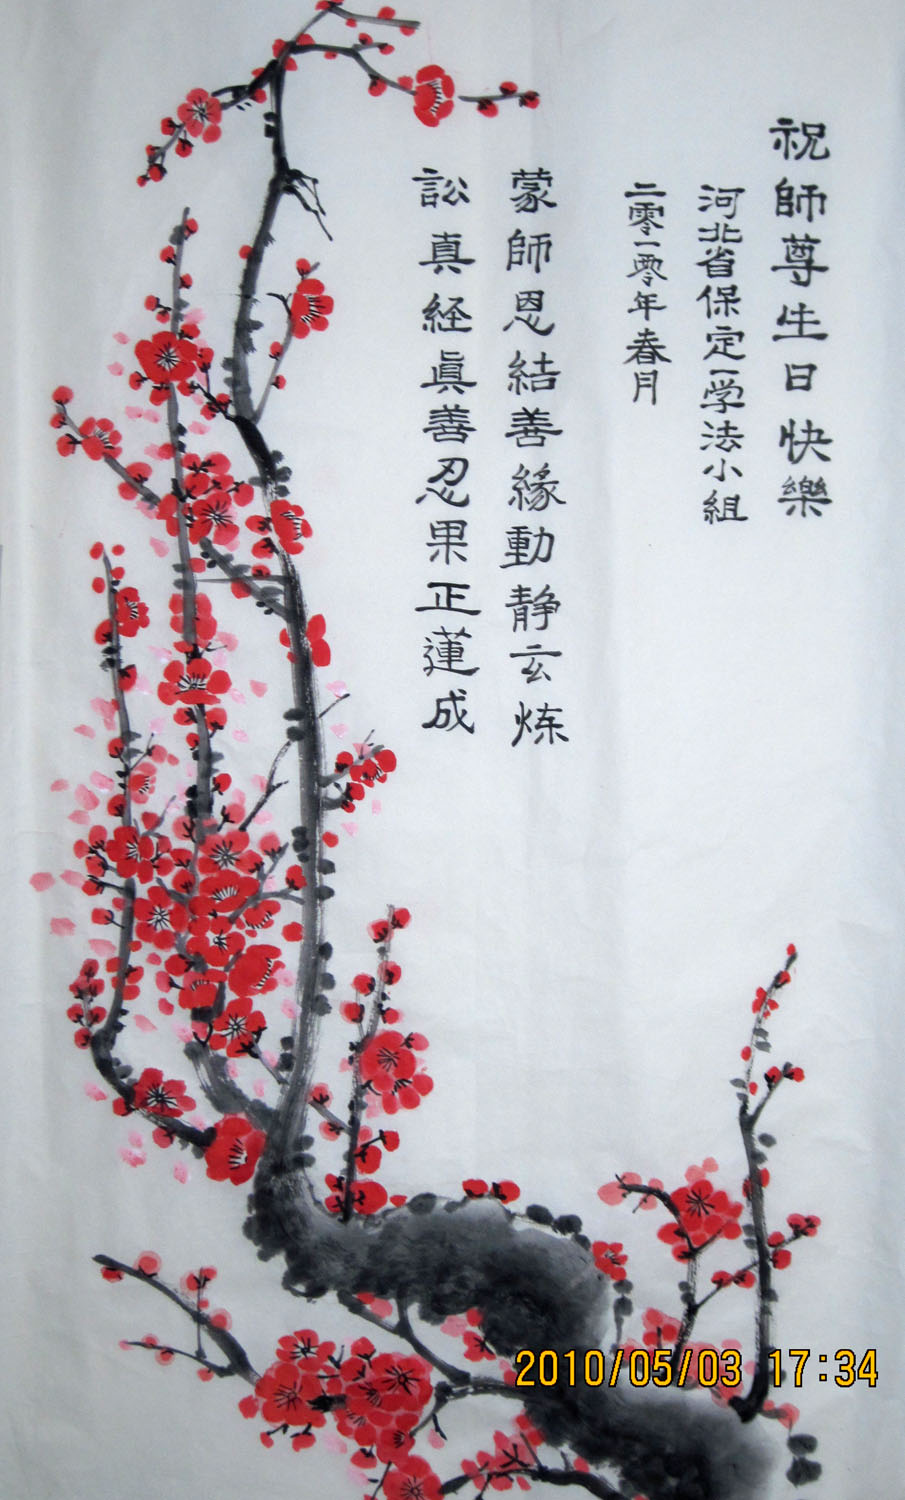 祝師尊生日快樂
河北省保定一学法小組
二零一零年春月
蒙師恩結善緣動静玄炼
訟真経眞善忍果正蓮成
2010/05/03 17:34